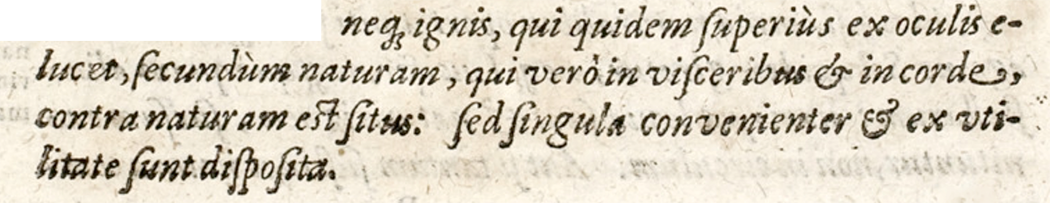 neq́; ignis, qui quidem ſuperiùs ex oculis e-
lucet, ſecundùm naturam, qui verò in viſceribus & in corde,
contra naturam eſt ſitus: ſed ſingula convenienter & ex vti-
litate ſunt diſpoſita.